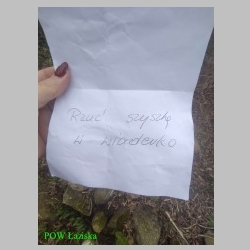 Rzuć szyszkę
w wiaderko
POW Łańska